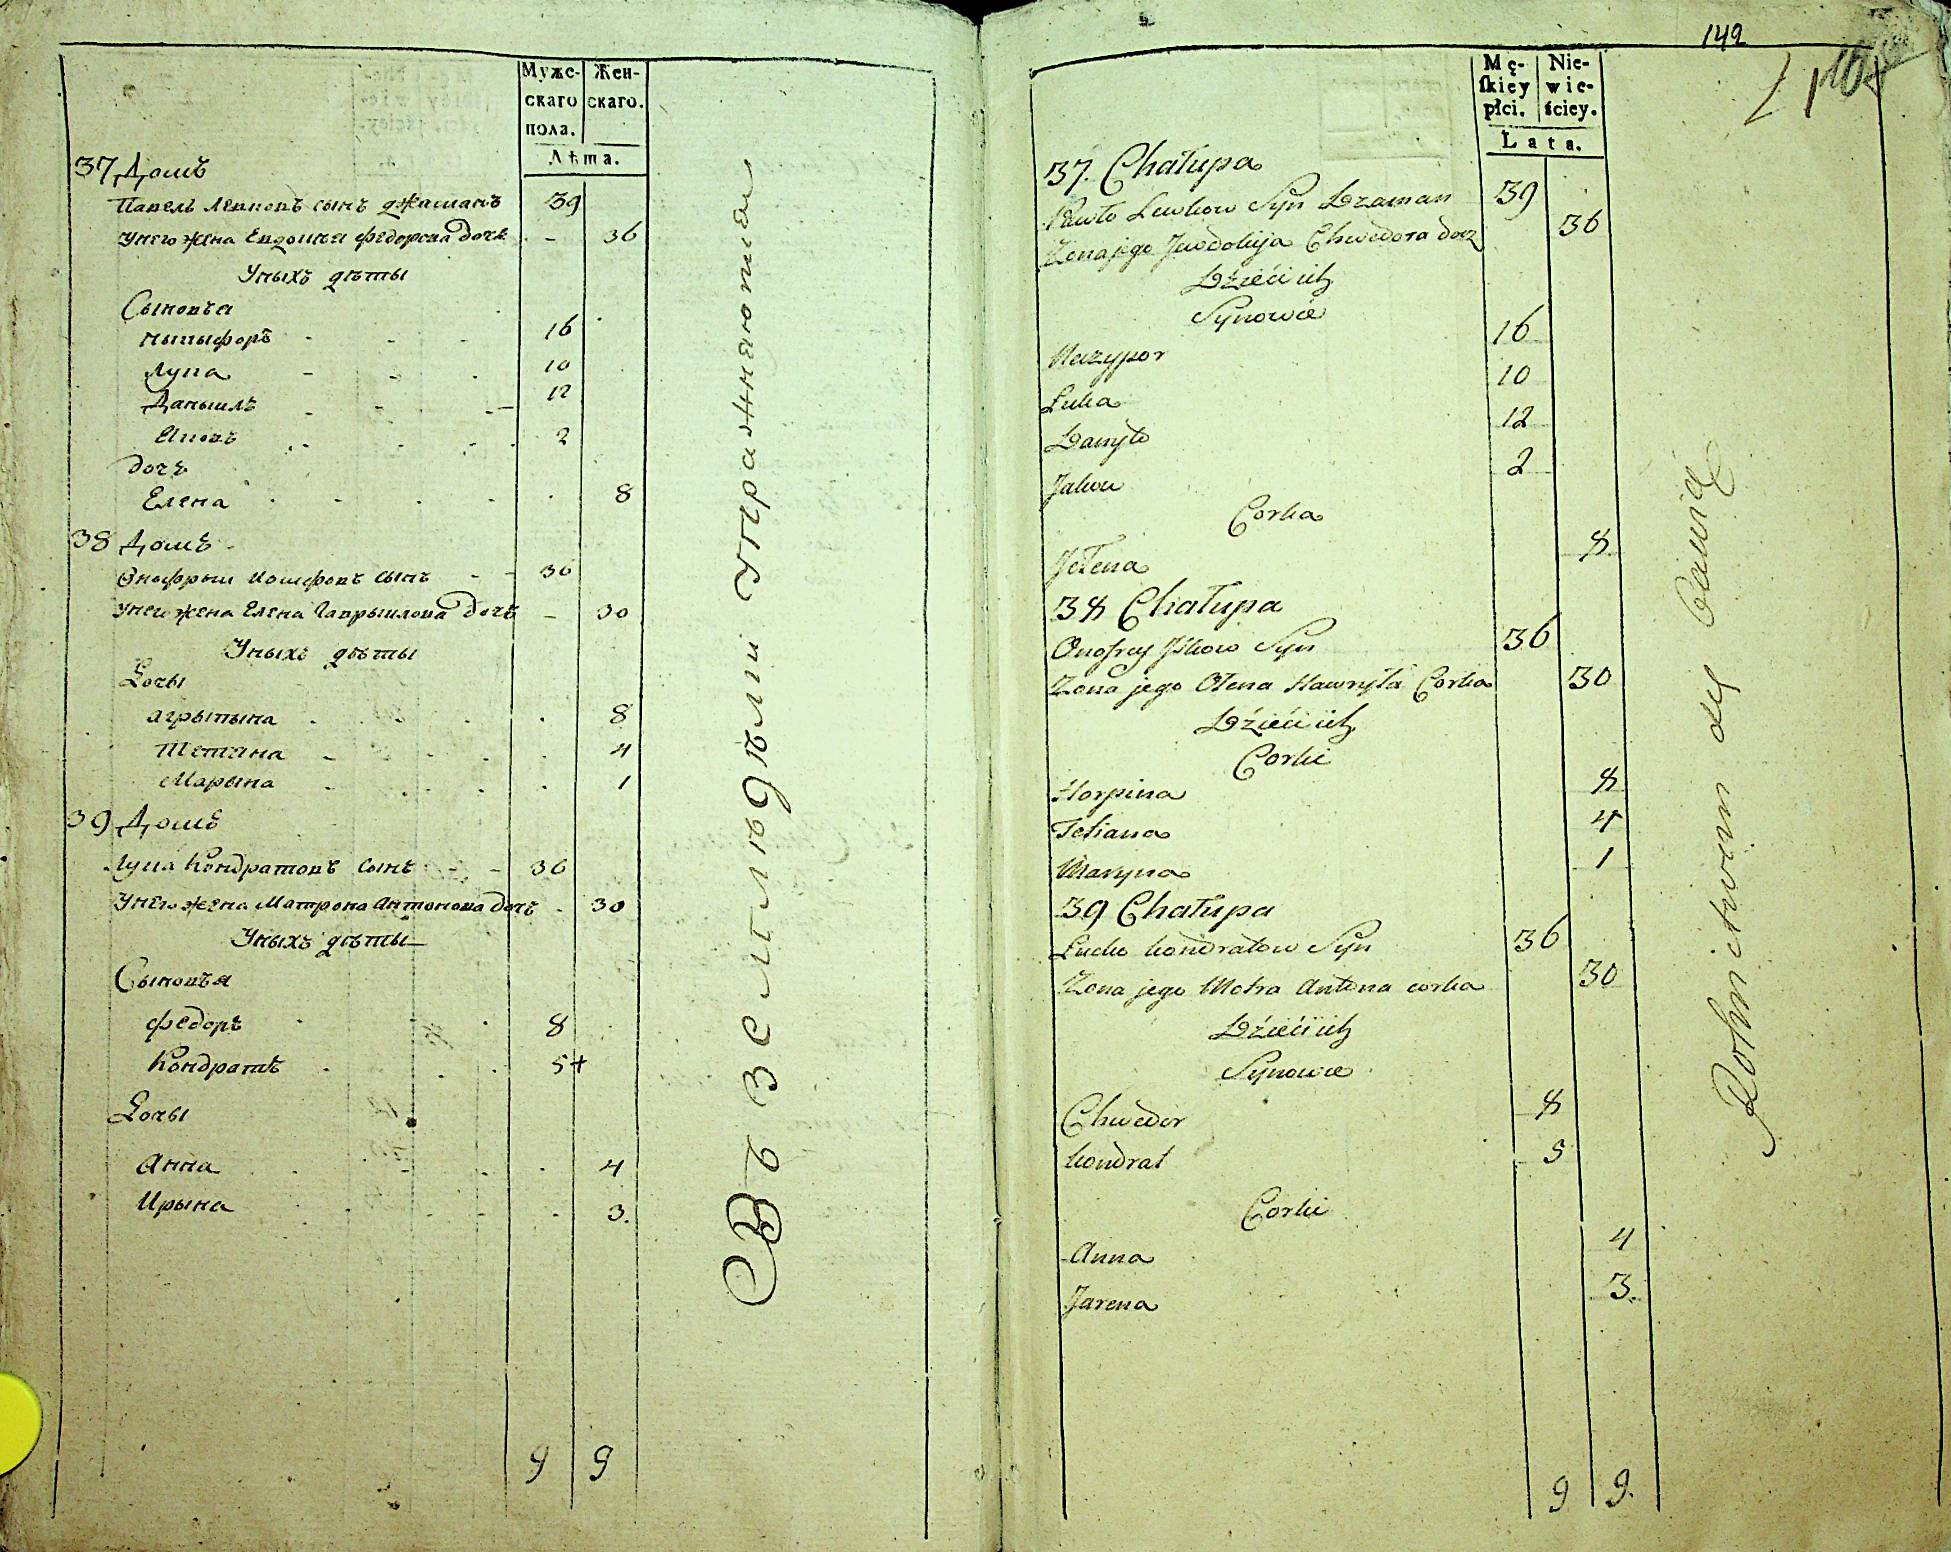 Муже-
скаго
пола.
Жен-
скаго.
Лѣта.
37 Домъ
Павелъ Левковъ сынъ Джаманъ 39
У него жена Евдокия Федорова дочь - 36
У ныхъ дѣты
Сыновъя
Ныпыфоръ 16
Лука 10
Даныилъ 12
Яковъ 2
дочъ
Елена 8
38 Домъ
Онофрыи сынъ 36
У него жена Елена Гаврыилова дочъ - 30
У ныхъ дѣты
Дочы
Агрыпына 8
Тетяна 4
Марына 1
39 Домъ
Лука Кондратовъ сынъ 36
У него жена Матрона Антонова дочъ 30
У ныхъ дѣты
Сыновъя
Федоръ 8
Кондратъ 5+
Дочы
Анна 4
Ирына 3.
9 9
Въ земледѣлии упражняются
142
Mę-
ſkiey
płci.
Nie-
wie-
ściey.
Lata.
37. Chałupa
Pawło Lewkow Syn Dzaman 39
Zona jego Jewdokija Chwedora docz 36
Dzieci ich
Synowie
Neczypor 16
Łuka 10
Danyło 12
Jakow 2
Corka
Jełena 8
38 Chałupa
Onofrey Syn 36
Zona jego Ołena Hawryła Corka 30
Dzieci ich
Corki
Horpina 8
Tetiana 4
Maryna 1
39 Chałupa
Kondratow Syn 36
Zona jego Motra Antona corka 30
Dzieci ich
Synowie
Chwedor 8
Kondrat 5
Corki
Anna 4
Jarena 3.
9 9.
Rolnictwem się bawią